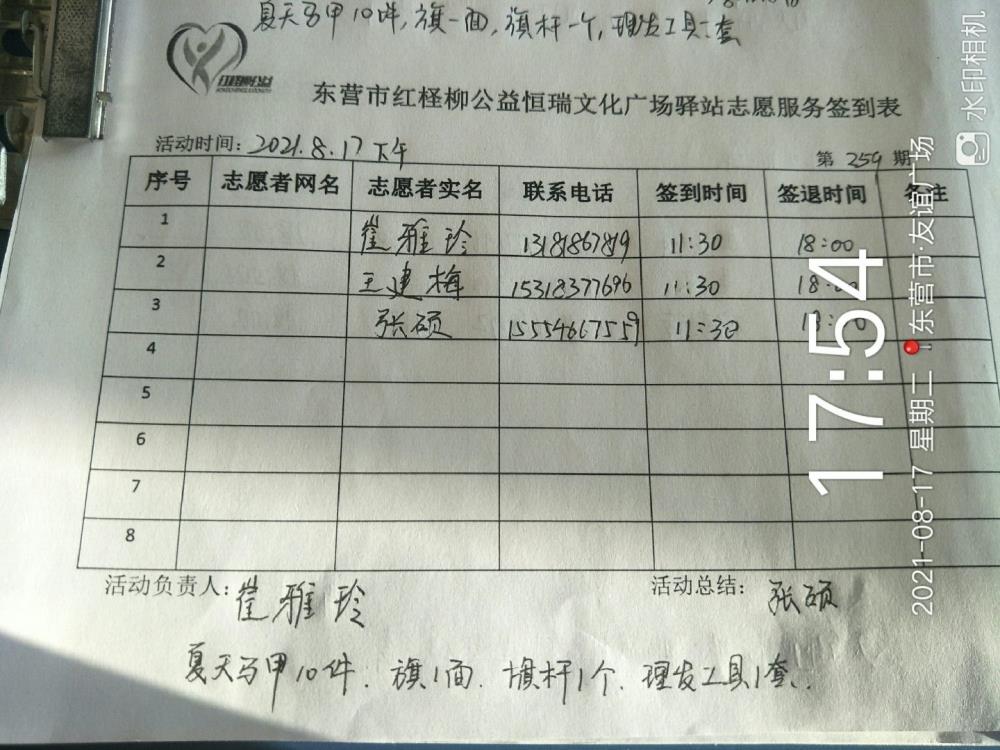 夏天马甲10件,旗一面,旗杆一个,理发工具一套
红柽柳公益
东营市红柽柳公益恒瑞文化广场驿站志愿服务签到表
活动时间:2021.8.17下午
第 259 期
序号 志愿者网名 志愿者实名 联系电话 签到时间 签退时间 备注
1 崔雅玲 13181867819 11:30 18:00
2 王建梅 15318377696 11:30
3 张硕 15554667559 11:30
4
5
6
7
8
活动负责人:崔雅玲 活动总结:张硕
夏天马甲10件.旗1面.旗杆1个.理发工具1套.
17:54
2021-08-17 星期二 东营市·友谊广场
水印相机